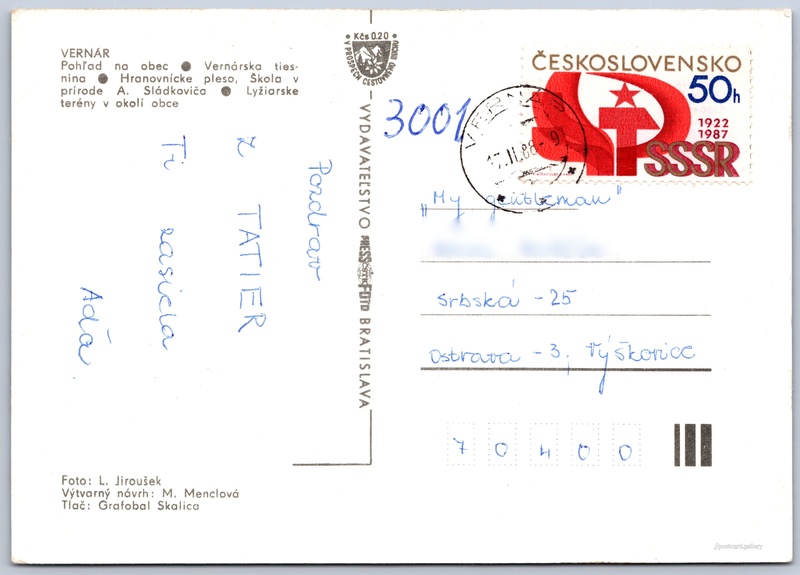 VERNÁR
Pohľad na obec ● Vernárska ties-
nina ● Hranovnícke pleso, Škola v
prírode A. Sládkoviča ● Lyžiarske
terény v okolí obce
Pozdrav
z TATIER
Ti zasiela
Ada
Foto: L. Jiroušek
Výtvarný návrh: M. Menclová
Tlač: Grafobal Skalica
Kčs 0.20
V PROSPECH CESTOVNÉHO RUCHU
VYDAVATEĽSTVO PRESSFOTO BRATISLAVA
3001
ČESKOSLOVENSKO
50h
1922
1987
SSSR
VERNÁR
17.II.88-9
„My gentleman"
Srbská - 25
Ostrava - 3, Výškovice
70400
//postcard.gallery